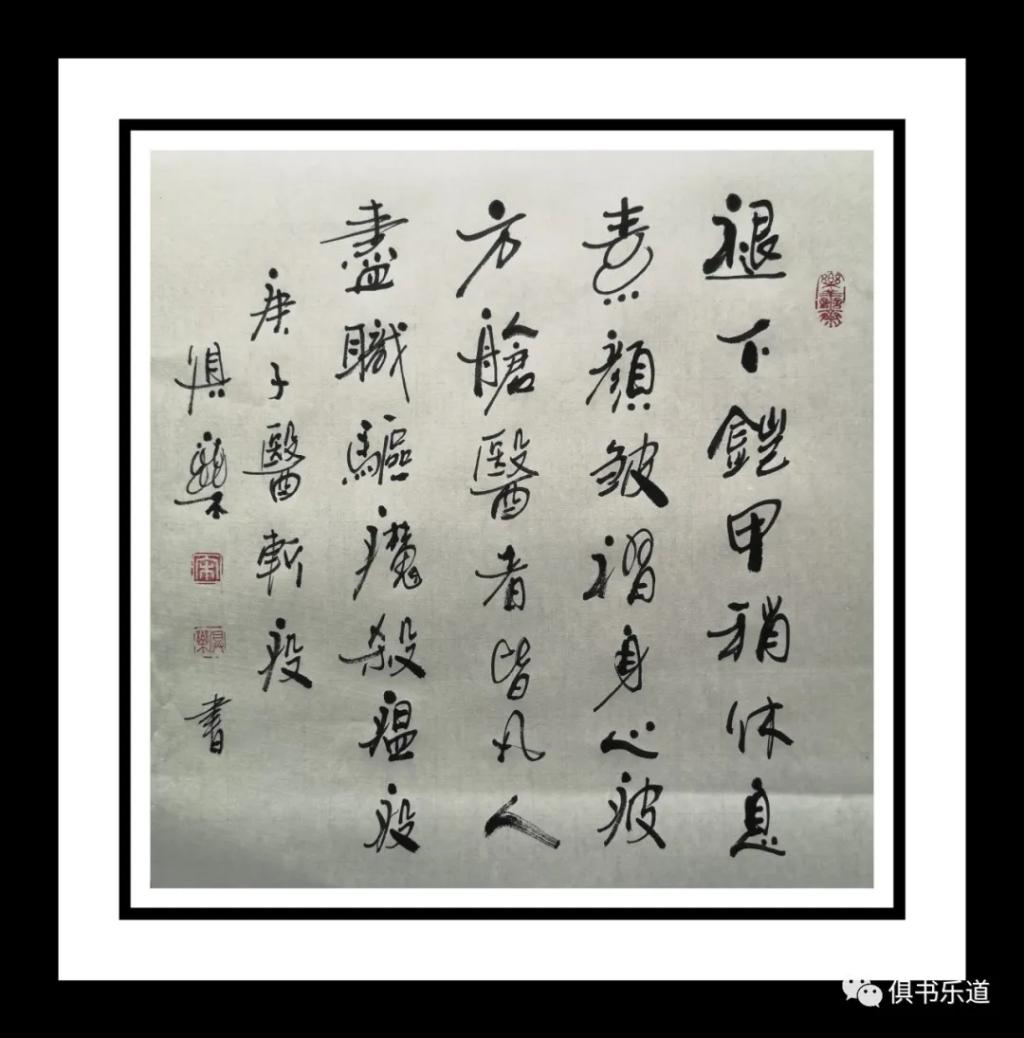 褪下鎧甲稍休息
素顏皴褶身心疲
方艙醫者皆凡人
盡職驅魔殺瘟疫
庚子醫斬疫
俱樂
書
俱书乐道